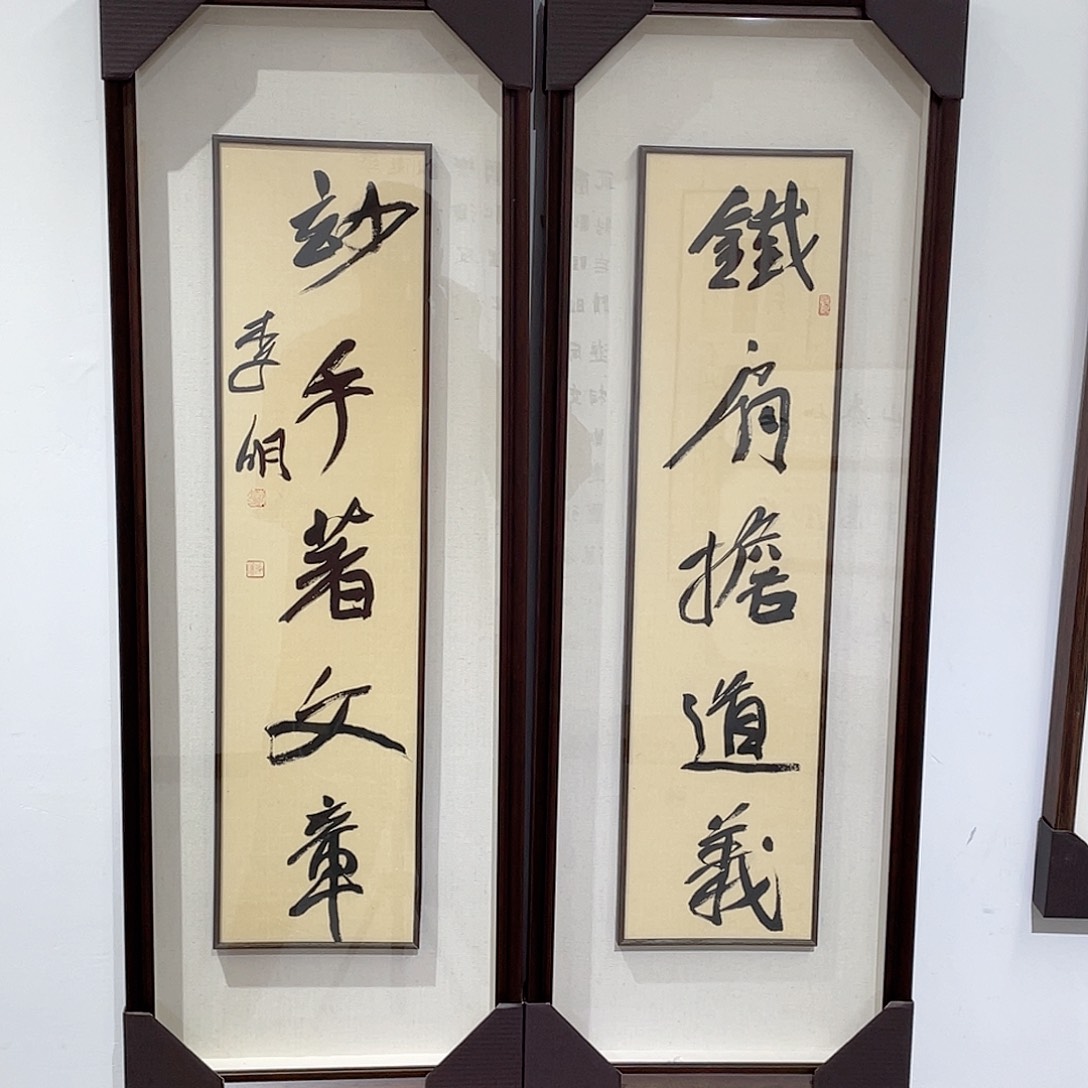 鐵肩擔道義
妙手著文章
李明